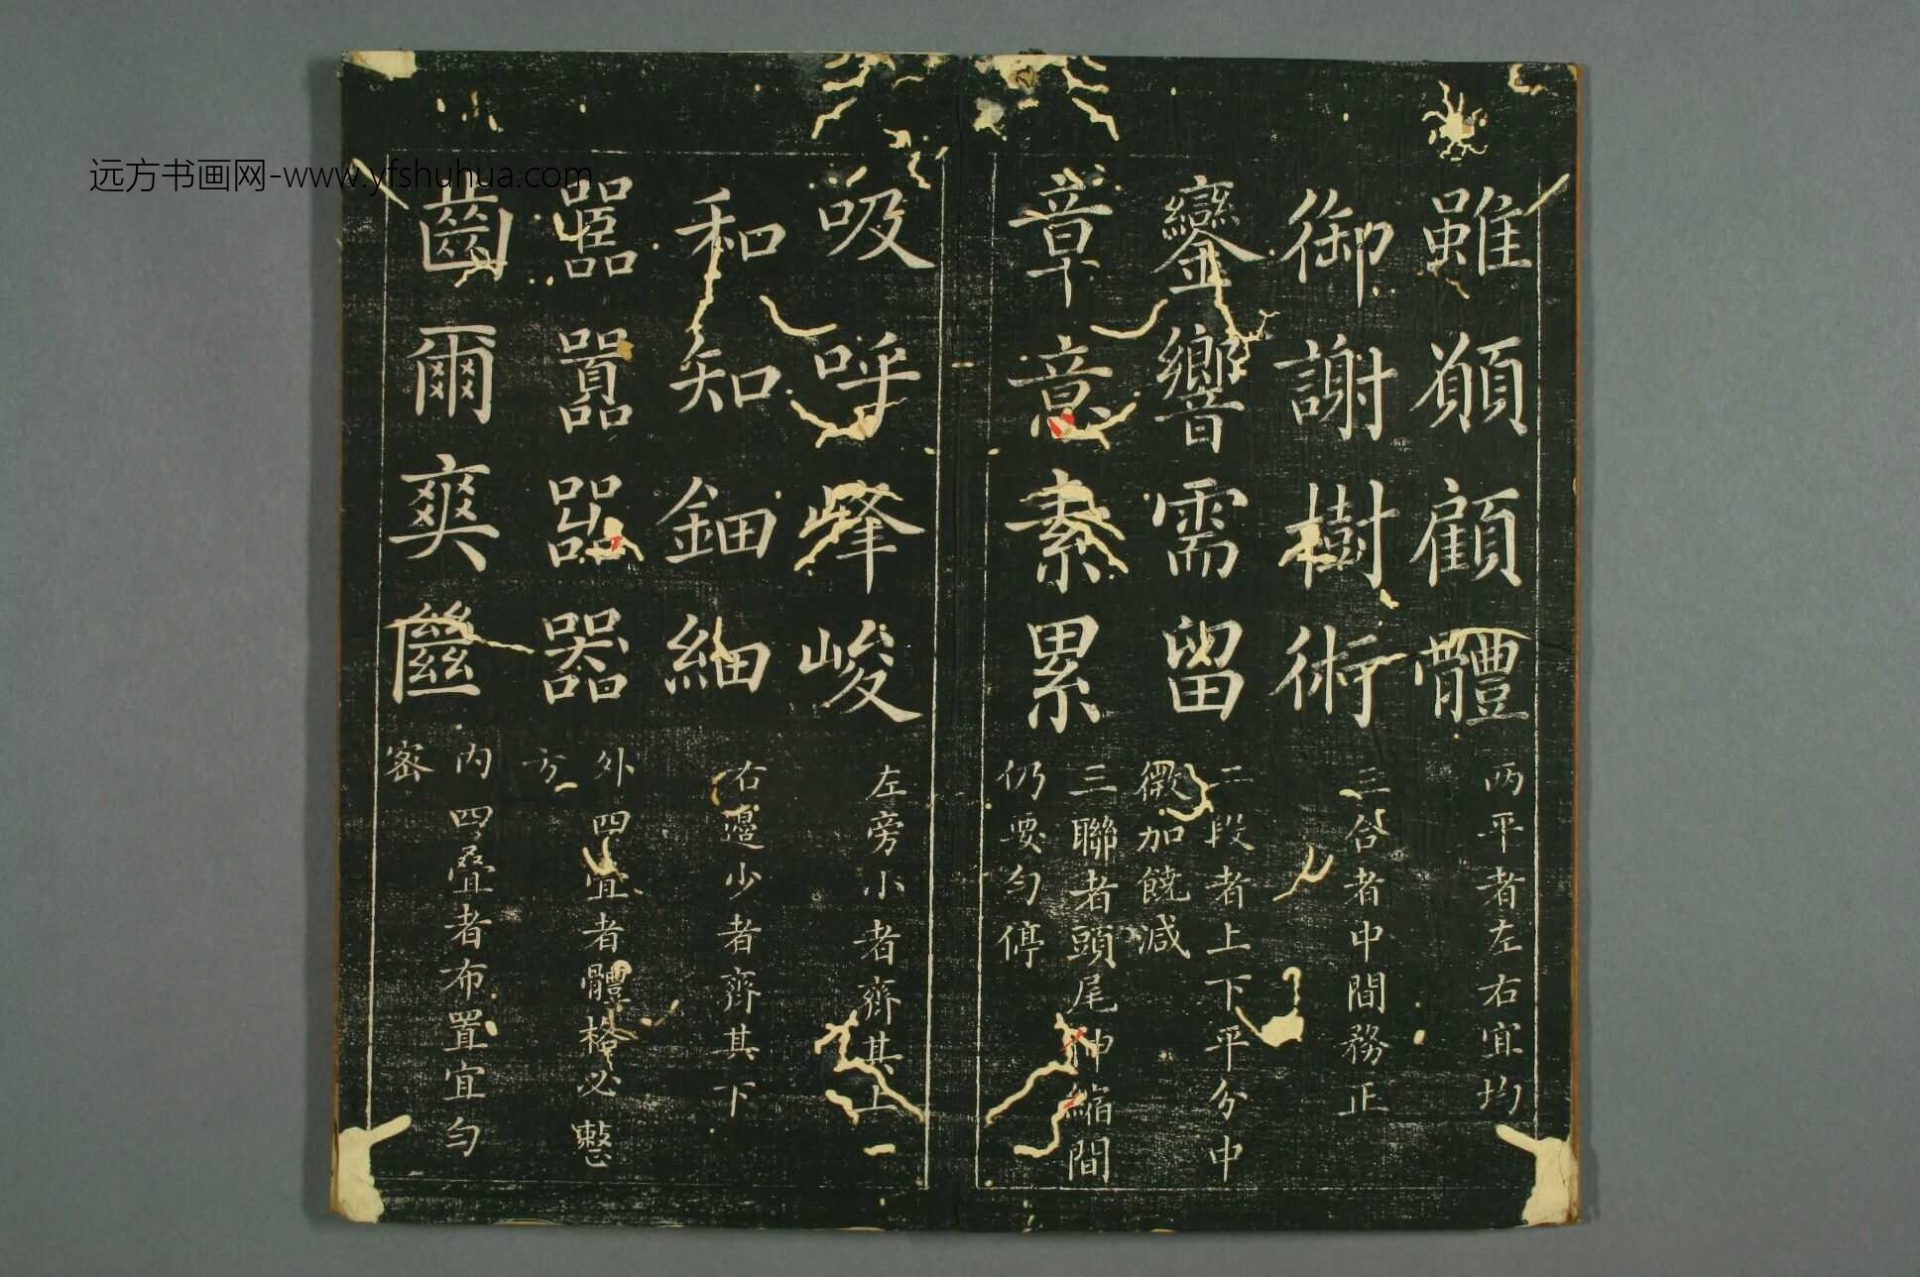 远方书画网-www.yfshuhua.com
雖願顧體
两平者左右宜均
御謝樹術
三合者中間務正
鑾響需留
二段者上下平分中
微加饒减
章意素累
三聯者頭尾伸縮間
仍要勻停
吸呼峰峻
左旁小者齊其上
和知鈿細
右邊少者齊其下
嚚囂器
外四宜者體格必整
方
齒爾爽
內四疊者布置宜勻
密